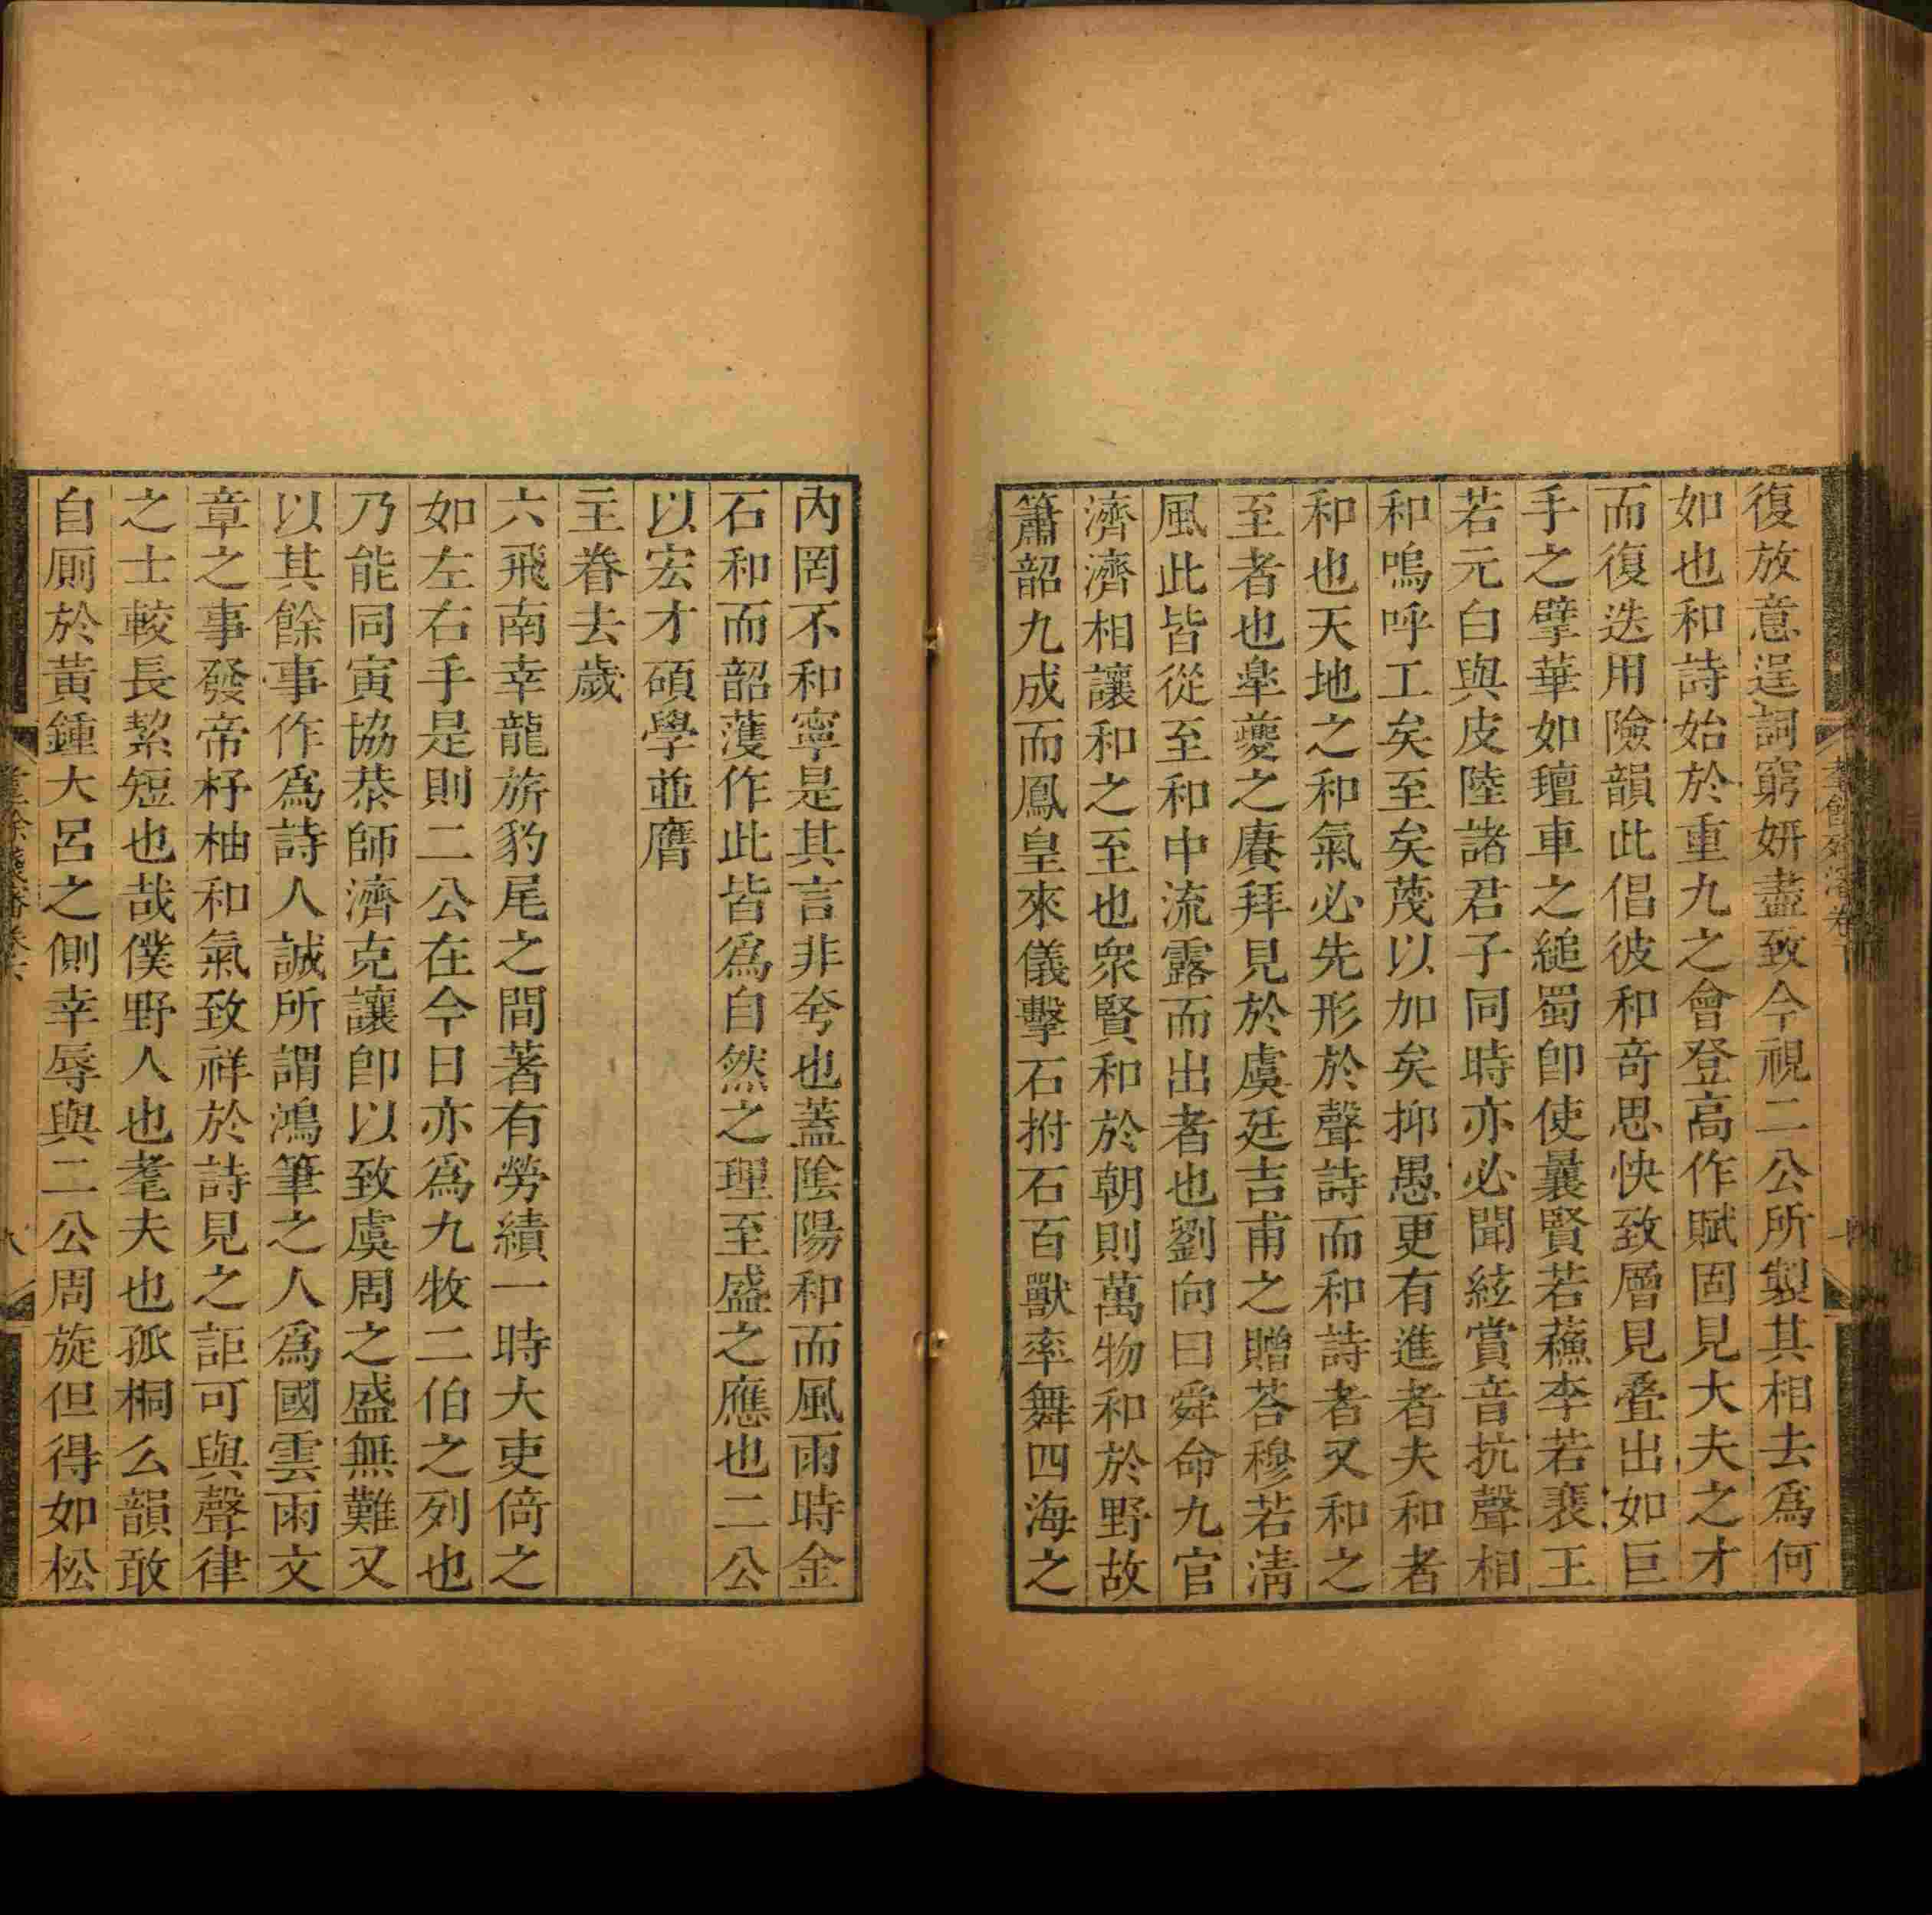 復放意逞詞窮妍盡致今視二公所製其相去爲何
如也和詩始於重九之會登高作賦固見大夫之才
而復迭用險韻此倡彼和奇思快致層見疊出如巨
手之擘華如璮車之縋蜀卽使曩賢若蘓李若裴王
若元白與皮陸諸君子同時亦必聞絃賞音抗聲相
和嗚呼工矣至矣蔑以加矣抑愚更有進者夫和者
和也天地之和氣必先形於聲詩而和詩者又和之
至者也皋夔之賡拜見於虞廷吉甫之贈荅穆若淸
風此皆從至和中流露而出者也劉向曰舜命九官
濟濟相讓和之至也衆賢和於朝則萬物和於野故
簫韶九成而鳳皇來儀擊石拊石百獸率舞四海之
內罔不和寧是其言非夸也蓋陰陽和而風雨時金
石和而韶濩作此皆爲自然之理至盛之應也二公
以宏才碩學並膺
主眷去歲
六飛南幸龍旂豹尾之間著有勞績一時大吏倚之
如左右手是則二公在今日亦爲九牧二伯之列也
乃能同寅協恭師濟克讓卽以致虞周之盛無難又
以其餘事作爲詩人誠所謂鴻筆之人爲國雲雨文
章之事發帝杼柚和氣致祥於詩見之詎可與聲律
之士較長絜短也哉僕野人也耄夫也孤桐么韻敢
自厠於黃鍾大呂之側幸辱與二公周旋但得如松